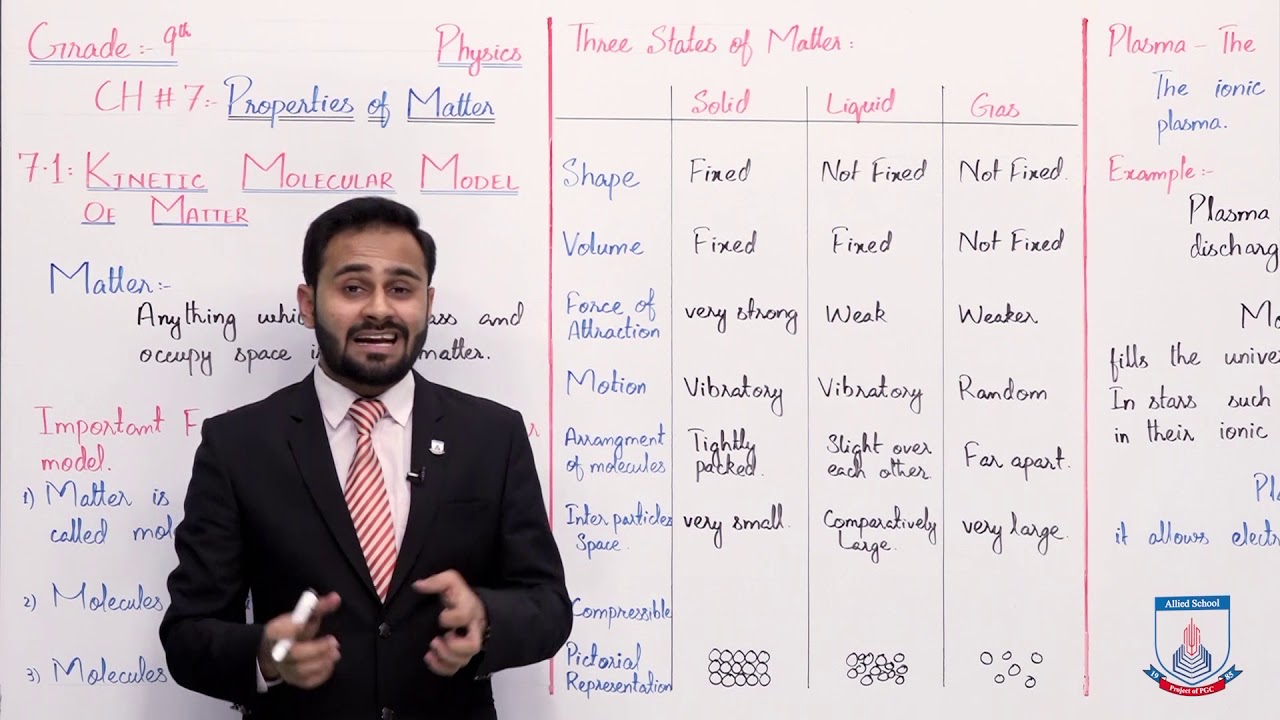 Grade:- 9th Physics
CH # 7:- Properties of Matter
7.1: KINETIC MOLECULAR MODEL
OF MATTER
Matter:-
Anything and
occupy space matter.
Important
model.
1) Matter is
called
2) Molecules
3) Molecules
Three States of Matter:
Solid Liquid Gas
Shape Fixed Not Fixed Not Fixed.
Volume Fixed Fixed Not Fixed
Force of
Attraction very strong Weak Weaker
Motion Vibratory Vibratory Random
Arrangment Tightly Slight over
of molecules packed. each other. Far apart.
Inter particles very small. Comparatively very large.
Space. Large.
Compressible
Pictorial
Representation
Plasma - The
The ionic
plasma.
Example:-
Plasma
discharg
fills the
In stars such
in their ionic
it allows
Allied School
1985
Project of PGC